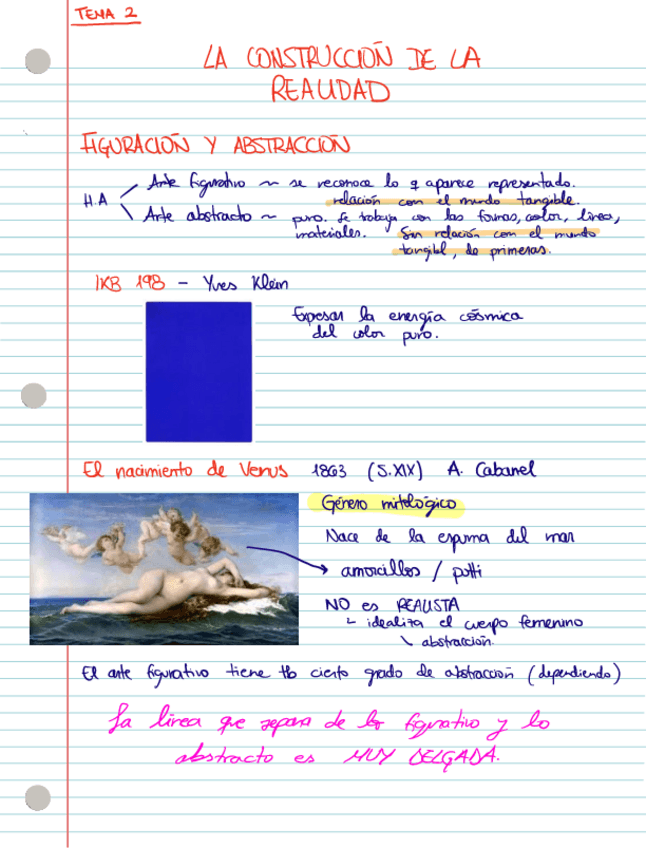 TEMA 2
LA CONSTRUCCIÓN DE LA
REALIDAD
FIGURACIÓN Y ABSTRACCIÓN
H.A
Arte figurativo ~ se reconoce lo q aparece representado.
relación con el mundo tangible.
Arte abstracto ~ puro. Se trabaja con las formas, color, línea,
materiales. Sin relación con el mundo
tangibl, de primeras.
IKB 198 - Yves Klein
Expesar la energía cósmica
del color puro.
El nacimiento de Venus 1863 (S.XIX) A. Cabanel
Género mitológico
Nace de la espuma del mar
amorcillos / putti
NO es REALISTA
idealiza el cuerpo femenino
abstracción.
El arte figurativo tiene tb cierto grado de abstracción (dependiendo)
La línea que separa de lo figurativo y lo
abstracto es MUY DELGADA.